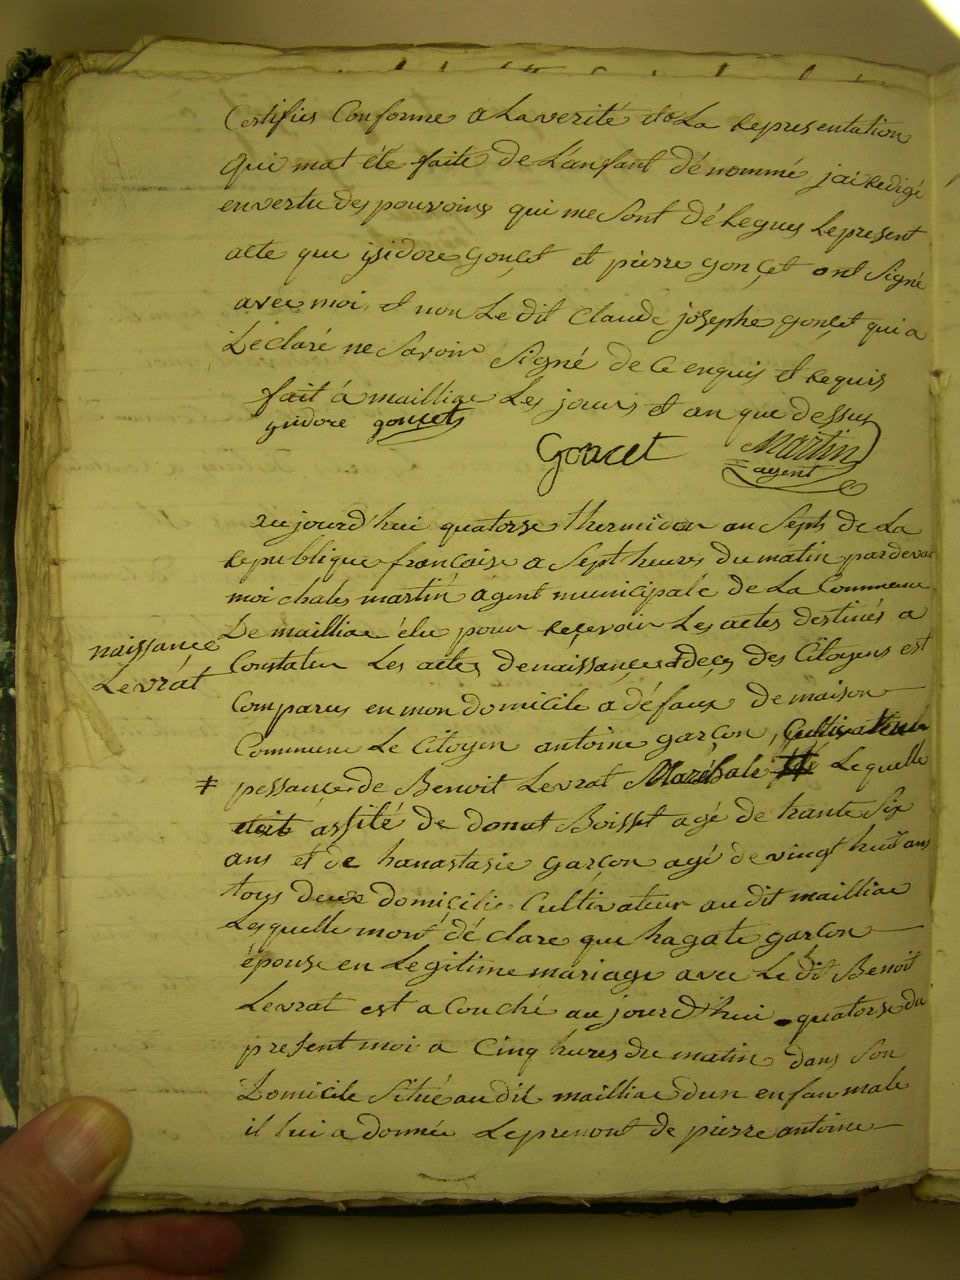 Certifies Conforme a La verité et a La represensation
qui mat été faite de L'anfant dénommé jai redigé
en vertu des pouvoirs qui me sont délegues Le present
acte que ysidore gonçet et pierre gonçet ont signé
avec moi et non Le dit Claude josephe gonçet qui a
Déclaré ne savoir signé de ce enquis et requis
fait á mailliac Les jours et an que dessus
ysidore gonçet
Goncet Martin
agent
aujourd'hui quatorse thermidor an Sept de La
republique francaise a Sept heures du matin pardevan
moi chales martin agent municipale de La Commune
De mailliac élu pour reçevoir Les actes destinés a
naissance
Levrat
Constater Les actes denaissançe et deçes des Citoyens est
Comparus en mon domicile a défaux de maison
Commune Le Citoyen antoine garçon, Cultivateur
# pessançe de Benoit Levrat Maréchale Lequelle
etoit assité de donat Boisset agé de trante Six
ans et de hanastasie garçon agé de vingt huit ans
tous deux domiçilie Cultivateur au dit mailliac
Lesquelle mont déclare que hagate garçon
épouse en Legitime mariage avec Le dit Benoit
Levrat est a Couché aujourd'hui quatorse du
present moi a Cinq hures du matin dans Son
Domicile Situé au dit mailliac dun enfan male
il lui a donnée Leprenont de pierre antoine